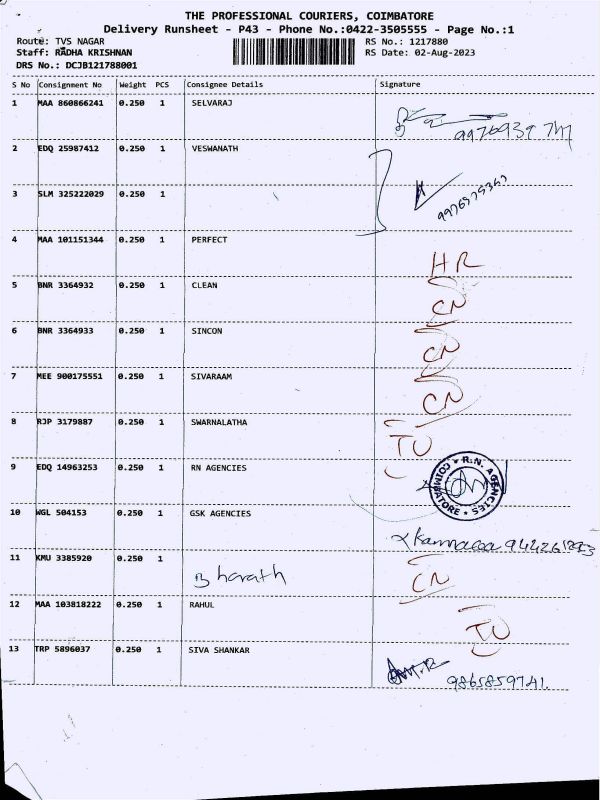 THE PROFESSIONAL COURIERS, COIMBATORE
Delivery Runsheet - P43 - Phone No.:0422-3505555 - Page No.:1
Route: TVS NAGAR RS No.: 1217880
Staff: RADHA KRISHNAN RS Date: 02-Aug-2023
DRS No.: DCJB121788001
S No Consignment No Weight PCS Consignee Details Signature
1 MAA 860866241 0.250 1 SELVARAJ
2 EDQ 25987412 0.250 1 VESWANATH
3 SLM 325222029 0.250 1
4 MAA 101151344 0.250 1 PERFECT
HR
5 BNR 3364932 0.250 1 CLEAN
CN
6 BNR 3364933 0.250 1 SINCON
CN
7 MEE 900175551 0.250 1 SIVARAAM
CN
8 RJP 3179887 0.250 1 SWARNALATHA
TU
9 EDQ 14963253 0.250 1 RN AGENCIES
R.N. AGENCIES COIMBATORE
10 WGL 504153 0.250 1 GSK AGENCIES
11 KMU 3385920 0.250 1
Bharath CN
12 MAA 103818222 0.250 1 RAHUL
TU
13 TRP 5896037 0.250 1 SIVA SHANKAR
9865859741